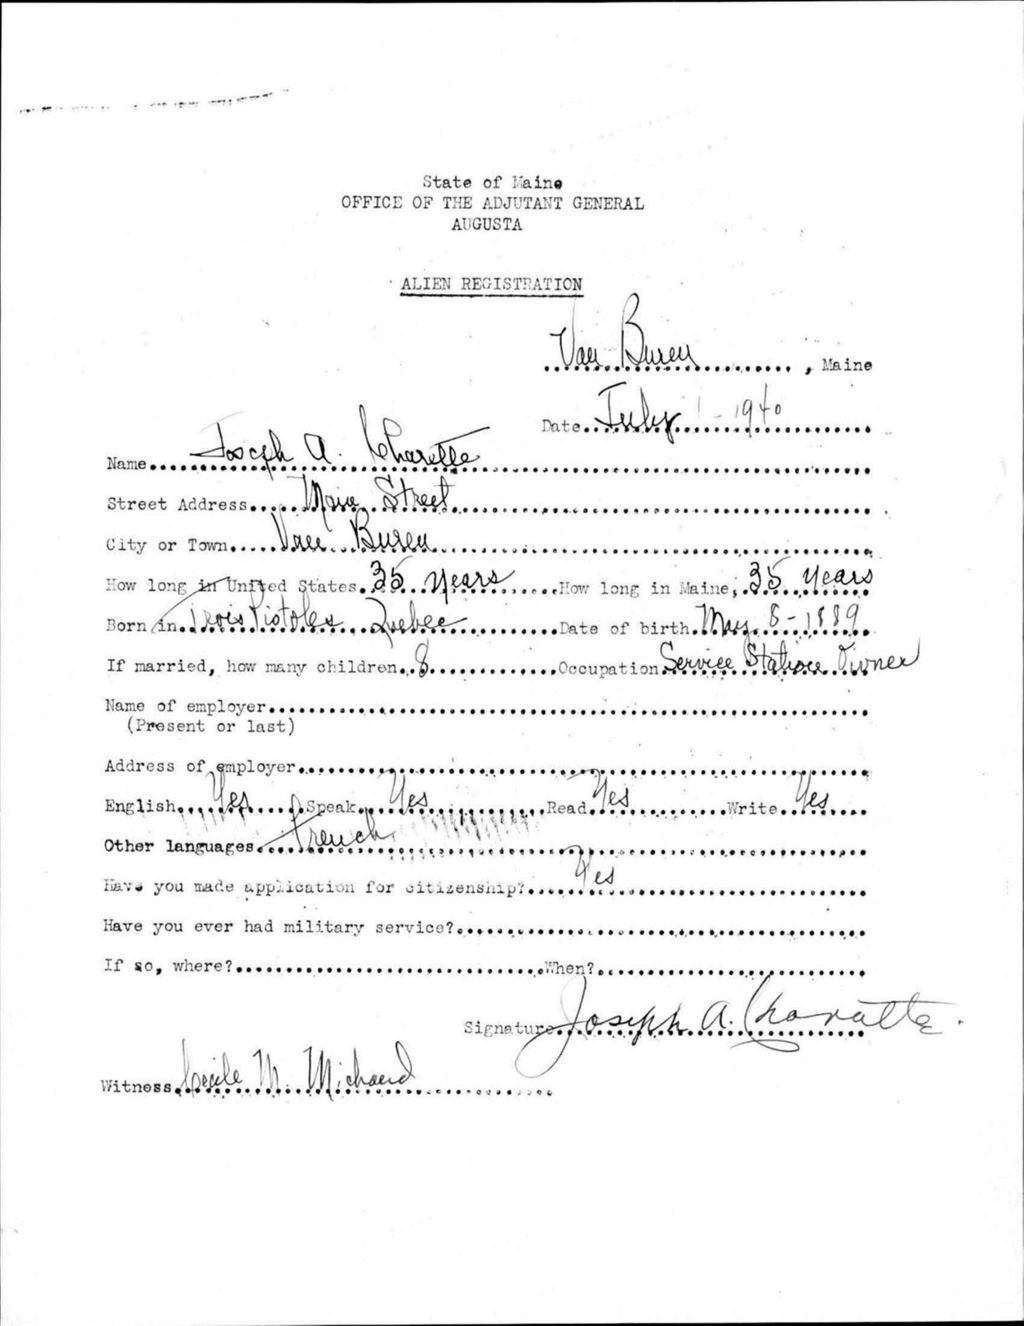 State of Maine
OFFICE OF THE ADJUTANT GENERAL
AUGUSTA
ALIEN REGISTRATION
Van Buren, Maine
Date July 1 - 1940
Name Joseph A. Charette
Street Address Main Street
City or Town Van Buren
How long in United States 35 years How long in Maine 35 years
Born in Trois Pistoles Quebec Date of birth May 8 - 1889
If married, how many children 8 Occupation Service Station Owner
Name of employer
(Present or last)
Address of employer
English Yes Speak Yes Read Yes Write Yes
Other languages French
Have you made application for citizenship? Yes
Have you ever had military service?
If so, where? When?
Signature Joseph A. Charatte.
Witness Cecile M. Michaud